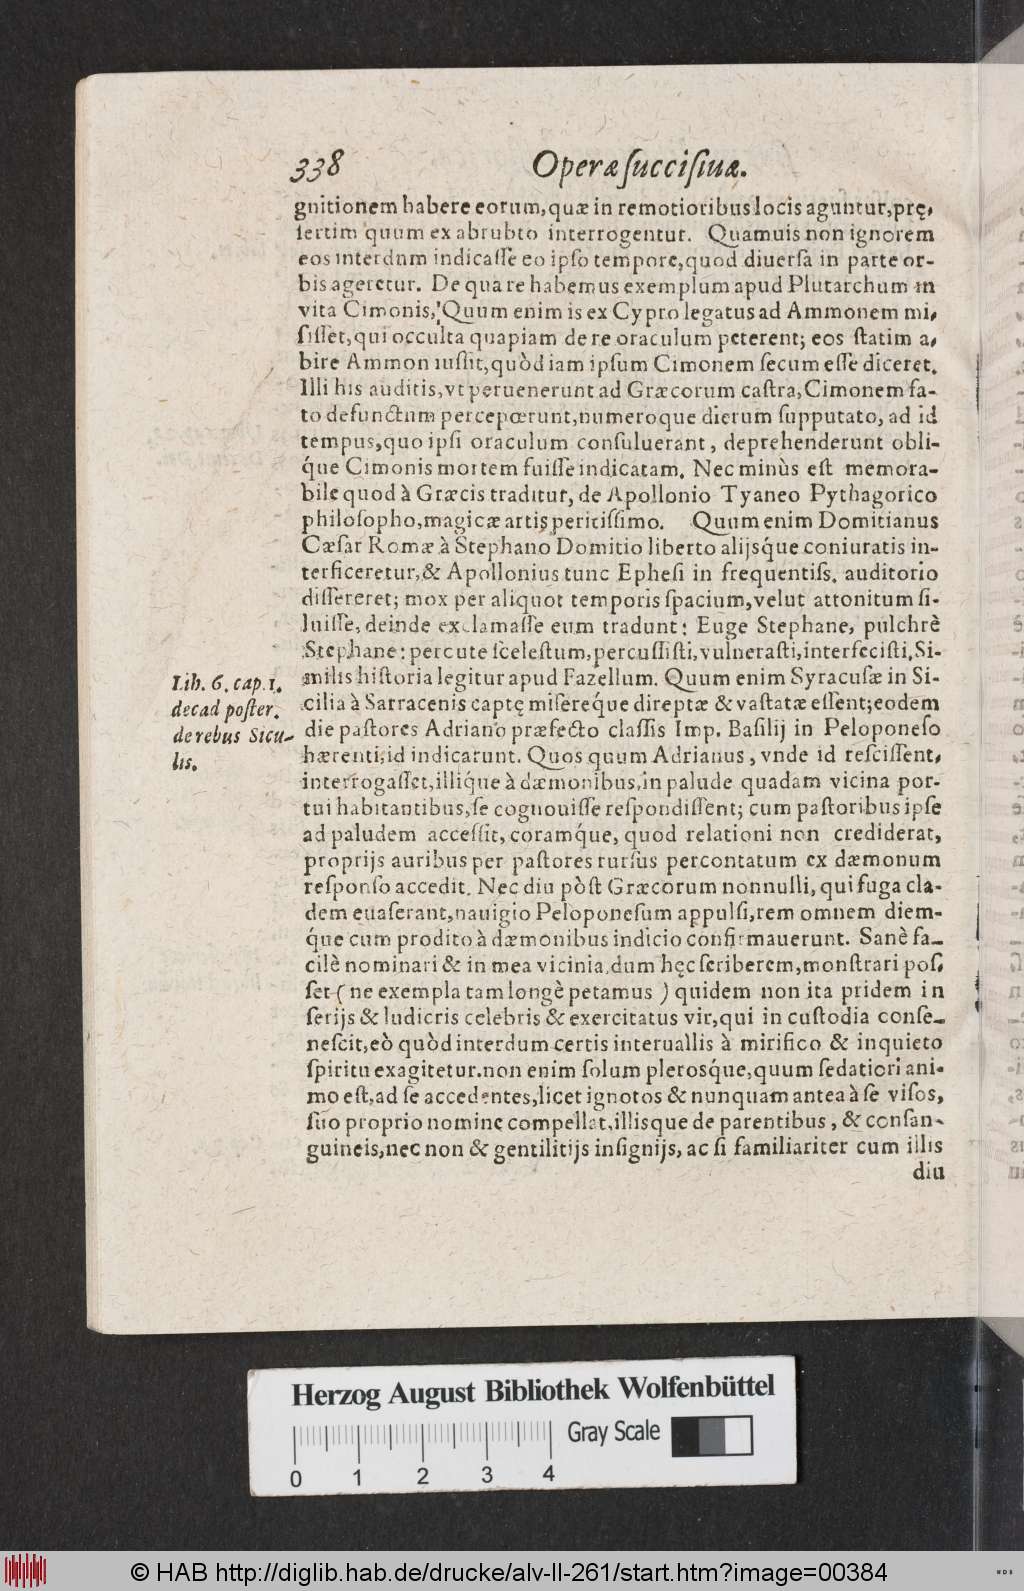 338 Operæ ſucciſiuæ.
gnitionem habere eorum, quæ in remotioribus locis aguntur, pręſertim
ſertim quum ex abrubto interrogentur. Quamuis non ignorem
eos interdum indicaſſe eo ipſo tempore, quod diuerſa in parte or-
bis ageretur. De qua re habemus exemplum apud Plutarchum in
vita Cimonis, Quum enim is ex Cypro legatus ad Ammonem mi-
ſiſſet, qui occulta quapiam de re oraculum peterent; eos ſtatim a-
bire Ammon iuſſit, quòd iam ipſum Cimonem ſecum eſſe diceret.
Illi his auditis, vt peruenerunt ad Græcorum caſtra, Cimonem fa-
to defunctum percepœrunt, numeroque dierum ſupputato, ad id
tempus, quo ipſi oraculum conſuluerant, deprehenderunt obli-
q́ue Cimonis mortem fuiſſe indicatam. Nec minùs eſt memora-
bile quod à Græcis traditur, de Apollonio Tyaneo Pythagorico
philoſopho, magicæ artis peritiſſimo. Quum enim Domitianus
Cæſar Romæ à Stephano Domitio liberto alijsq́ue coniuratis in-
terficeretur, & Apollonius tunc Epheſi in frequentiſs. auditorio
diſſereret; mox per aliquot temporis ſpacium, velut attonitum ſi-
luiſſe, deinde exclamaſſe eum tradunt: Euge Stephane, pulchrè
Stephane: percute ſceleſtum, percuſſiſti, vulneraſti, interfeciſti. Si-
milis hiſtoria legitur apud Fazellum. Quum enim Syracuſæ in Si-
cilia à Sarracenis captę miſereq́ue direptæ & vaſtatæ eſſent; eodem
die paſtores Adriano præfecto claſſis Imp. Baſilij in Peloponeſo
hærenti, id indicarunt. Quos quum Adrianus, vnde id reſciſſent,
interrogaſſet, illiq́ue à dæmonibus, in palude quadam vicina por-
tui habitantibus, ſe cognouiſſe reſpondiſſent; cum paſtoribus ipſe
ad paludem acceſſit, coramq́ue, quod relationi non crediderat,
proprijs auribus per paſtores rurſus percontatum ex dæmonum
reſponſo accedit. Nec diu pòſt Græcorum nonnulli, qui fuga cla-
dem euaſerant, nauigio Peloponeſum appulſi, rem omnem diem-
q́ue cum prodito à dæmonibus indicio confirmauerunt. Sanè fa-
cilè nominari & in mea vicinia, dum hęc ſcriberem, monſtrari poſ-
ſet (ne exempla tam longè petamus) quidem non ita pridem in
ſerijs & ludicris celebris & exercitatus vir, qui in cuſtodia conſe-
neſcit, eò quòd interdum certis interuallis à mirifico & inquieto
ſpiritu exagitetur. non enim ſolum plerosq́ue, quum ſedatiori ani-
mo eſt, ad ſe accedentes, licet ignotos & nunquam antea à ſe viſos,
ſuo proprio nomine compellat, illisque de parentibus, & conſan-
guineis, nec non & gentilitijs inſignijs, ac ſi familiariter cum illis
diu
Lib. 6. cap. 1.
decad poſter.
de rebus Sicu-
lis.
Herzog August Bibliothek Wolfenbüttel
Gray Scale
0 1 2 3 4
© HAB http://diglib.hab.de/drucke/alv-ll-261/start.htm?image=00384